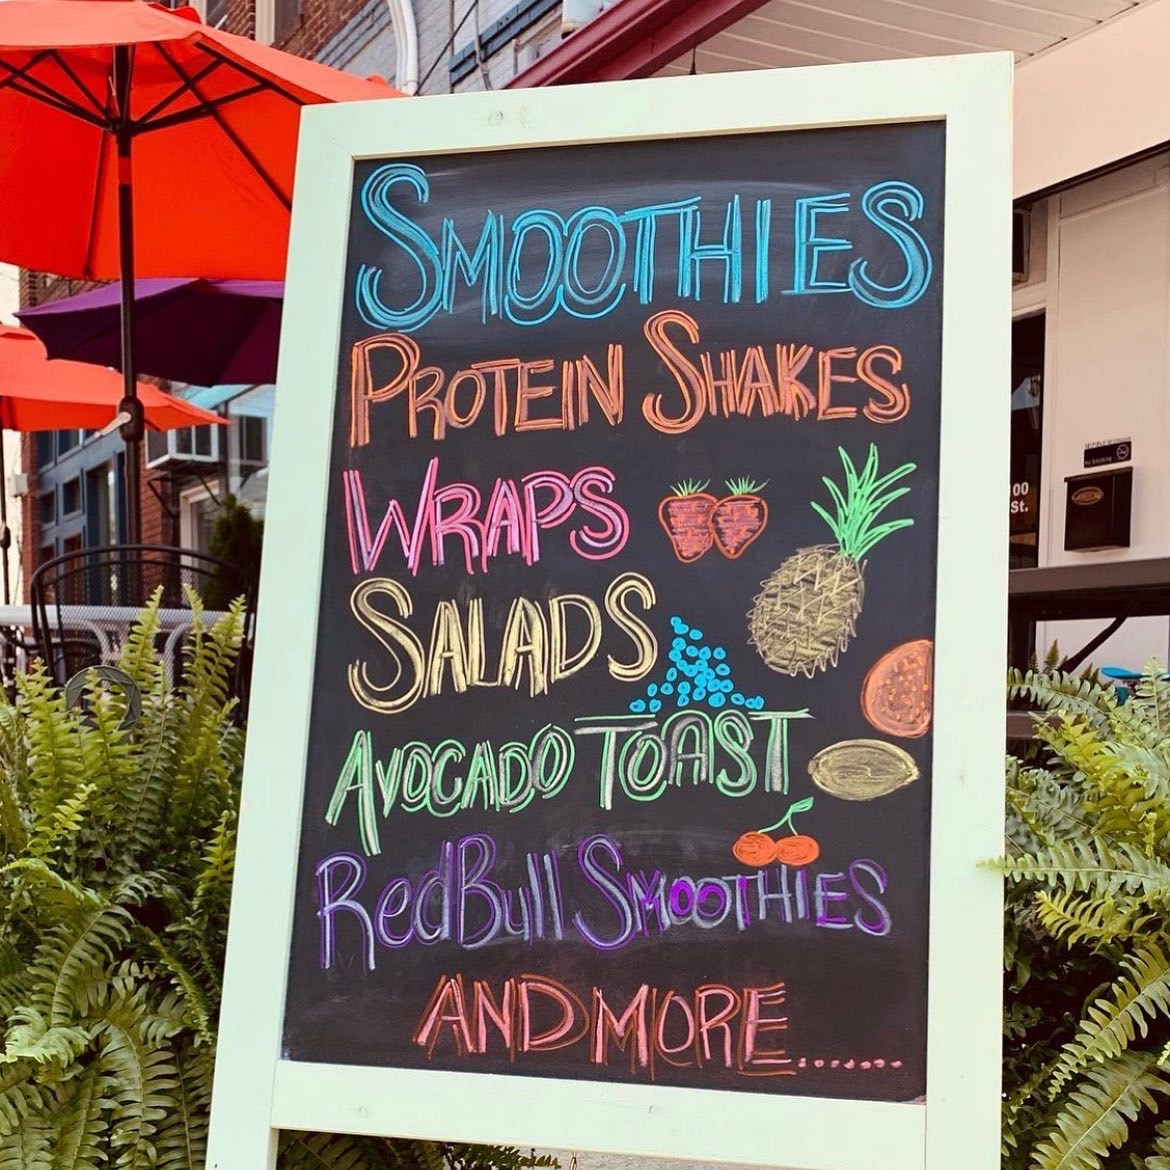 SMOOTHIES
PROTEIN SHAKES
WRAPS
SALADS
AVOCADO TOAST
RedBull SMOOTHIES
AND MORE.......
No Smoking
00
St.